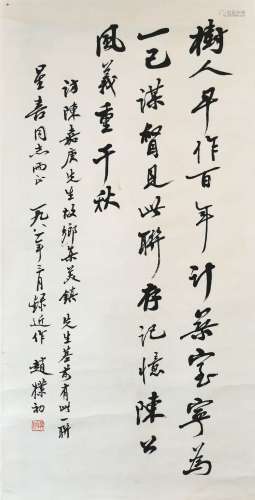 樹人早作百年計築室寧為
一己謀瞥見此聯存記憶陳公
風義重千秋
訪陳嘉庚先生故鄉集美鎮 先生墓前有此一聯
星喜同志兩正 一九八一年三月錄近作 趙樸初